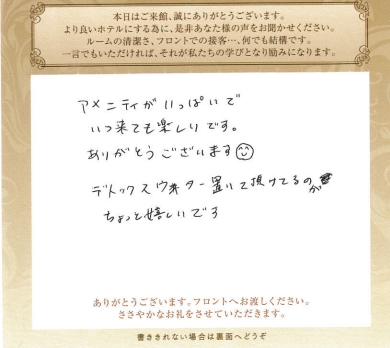 本日はご来館、誠にありがとうございます。
より良いホテルにする為に、是非あなた様の声をお聞かせください。
ルームの清潔さ、フロントでの接客…、何でも結構です。
一言でもいただければ、それが私たちの学びとなり励みになります。
アメニティがいっぱいで
いつ来ても楽しいです。
ありがとうございます
デトックスウォーター置いて頂けてるのが
ちょっと嬉しいです
ありがとうございます。フロントへお渡しください。
ささやかなお礼をさせていただきます。
書ききれない場合は裏面へどうぞ